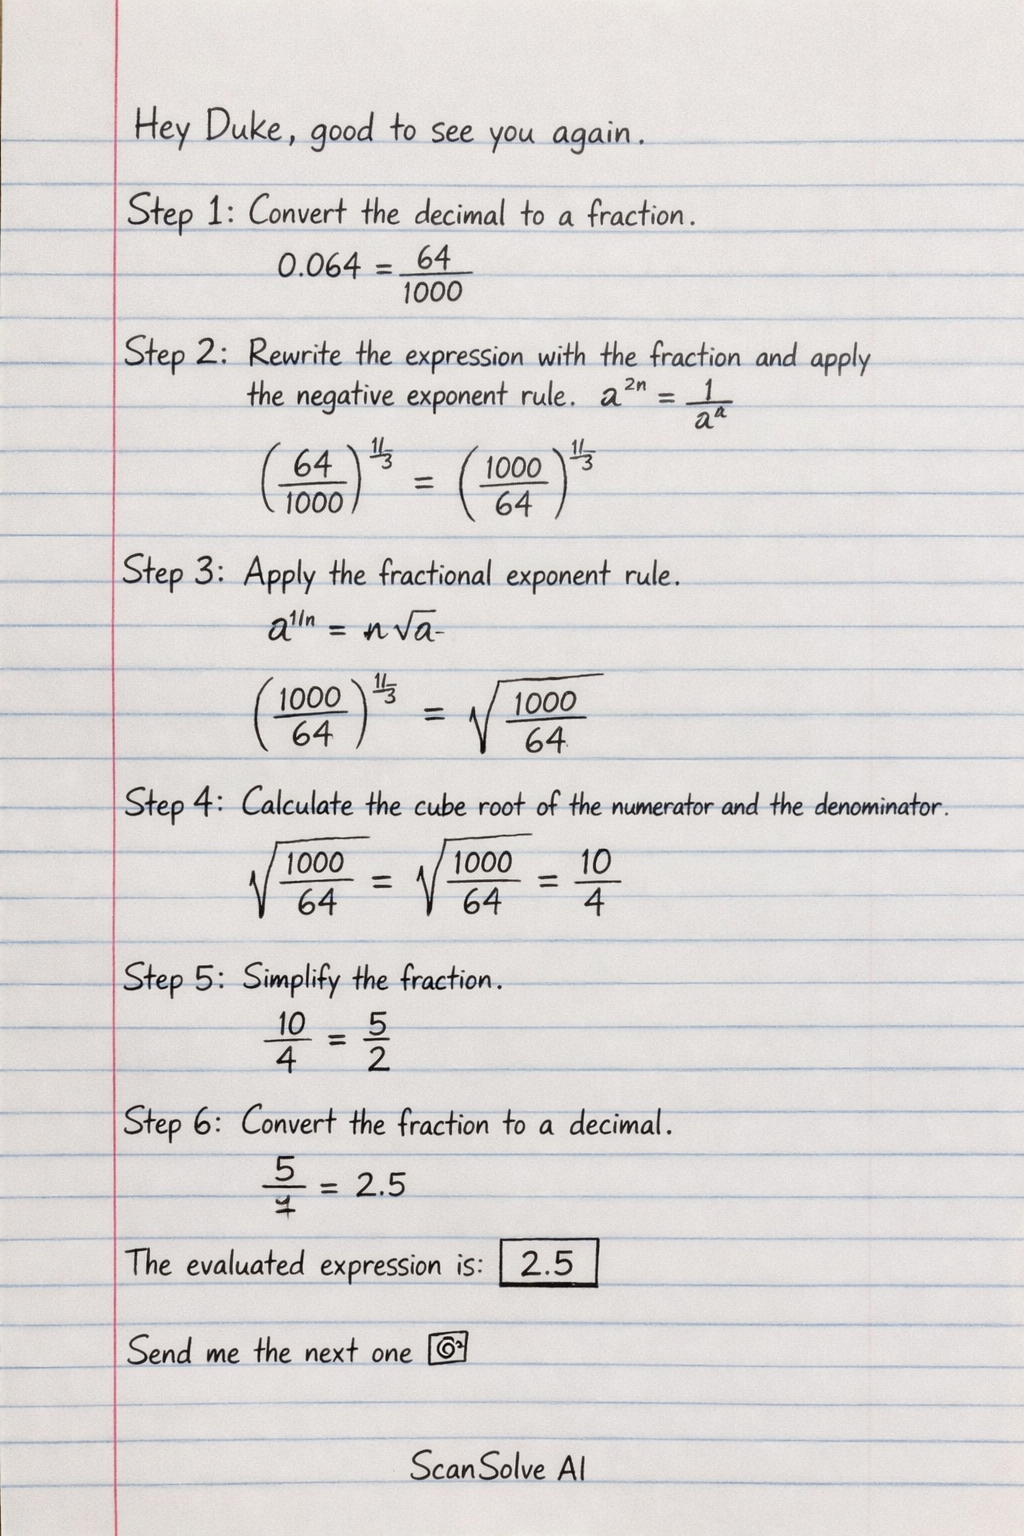 Hey Duke, good to see you again.
Step 1: Convert the decimal to a fraction.
0.064 = 64/1000
Step 2: Rewrite the expression with the fraction and apply
the negative exponent rule. a^2n = 1/a^a
(64/1000)^1/3 = (1000/64)^1/3
Step 3: Apply the fractional exponent rule.
a^1/n = n√a-
(1000/64)^1/3 = √(1000/64)
Step 4: Calculate the cube root of the numerator and the denominator.
√(1000/64) = √(1000/64) = 10/4
Step 5: Simplify the fraction.
10/4 = 5/2
Step 6: Convert the fraction to a decimal.
5/ = 2.5
The evaluated expression is: 2.5
Send me the next one
ScanSolve AI